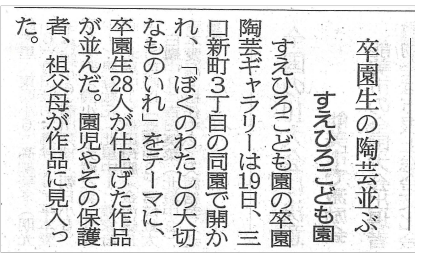 卒園生の陶芸並ぶ
すえひろこども園
すえひろこども園の卒園
陶芸ギャラリーは19日、三
口新町3丁目の同園で開か
れ、「ぼくのわたしの大切
なものいれ」をテーマに、
卒園生28人が仕上げた作品
が並んだ。園児やその保護
者、祖父母が作品に見入っ
た。